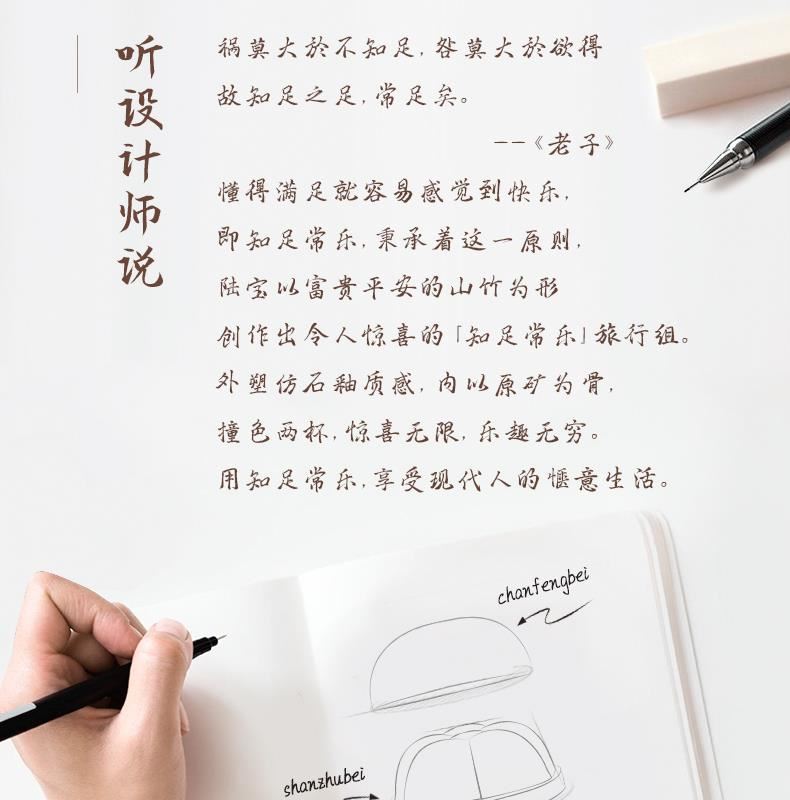 听设计师说
祸莫大於不知足,咎莫大於欲得
故知足之足,常足矣。
--《老子》
懂得满足就容易感觉到快乐,
即知足常乐,秉承着这一原则,
陆宝以富贵平安的山竹为形
创作出令人惊喜的「知足常乐」旅行组。
外塑仿石釉质感,内以原矿为骨,
撞色两杯,惊喜无限,乐趣无穷。
用知足常乐,享受现代人的惬意生活。
chanfengbei
shanzhubei